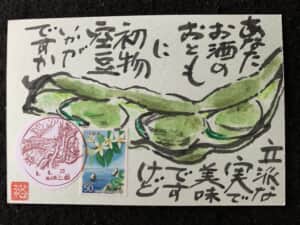 あなた
お酒の
おとも
に
初物
空豆
いかが
ですか
立派な
実で
美味
です
けど
50